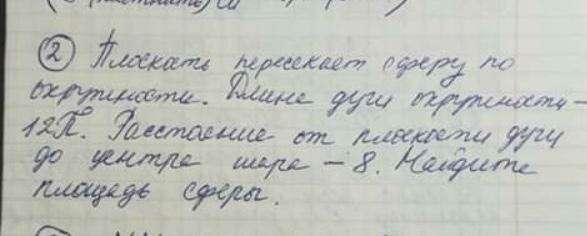 ② Плоскать пересекает сферу по
окружности. Длина дуги окружности -
12П. Расстояние от плоскости дуги
до центра шара - 8. Найдите
площадь сферы.